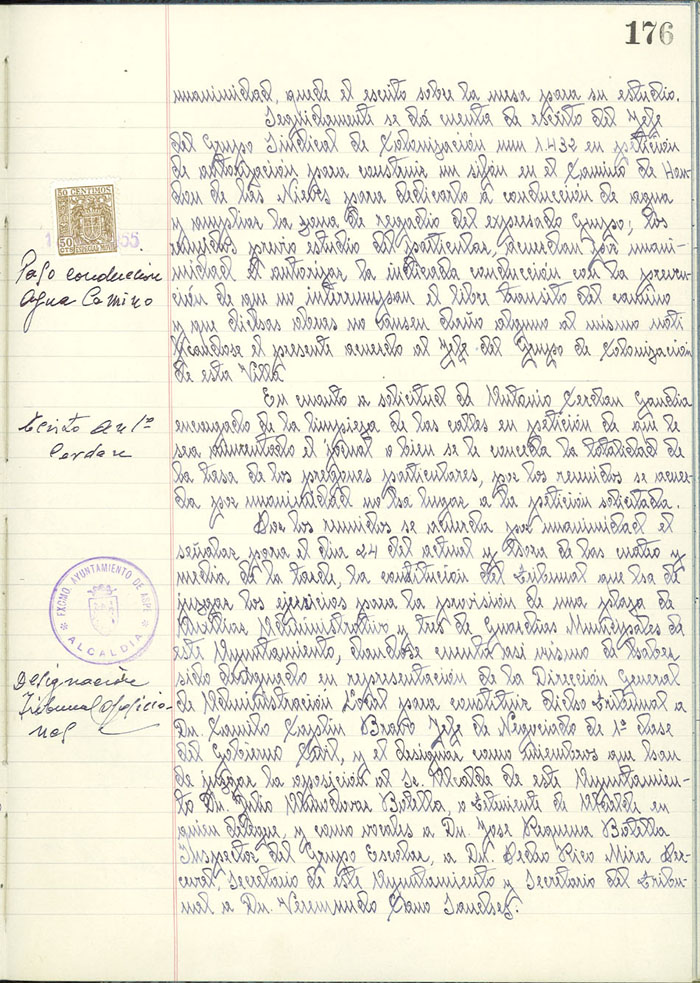 176
unanimidad, quede el escrito sobre la mesa para su estudio.
Seguidamente se dá cuenta de escrito del Jefe
del Grupo Sindical de Colonización num 1.432 en petición
de autorización para construir un sifón en el Camino de Hon-
don de las Nieves para dedicarlo a conducción de agua
y ampliar la zona de regadio del expresado Grupo; los
reunidos previo estudio del particular, acuerdan por unani-
midad el autorizar la indicada conducción con la preven-
ción de que no interrumpan el libre transito del camino
y que dichas obras no causen daño alguno al mismo noti
ficandose el presente acuerdo al Jefe del Grupo de Colonización
de esta Villa
En cuanto a solicitud de Antonio Cerdan Gandia
encargado de la limpieza de las calles en petición de que le
sea aumentado el jornal o bien se le conceda la totalidad de
la tasa de los pregones particulares, por los reunidos se acuer-
da por unanimidad no ha lugar a la petición solicitada.
Por los reunidos se acuerda por unanimidad el
señalar para el dia 24 del actual y hora de las cuatro y
media de la tarde, la constitución del Tribunal que ha de
juzgar los ejercicios para la provisión de una plaza de
Auxiliar Administrativo y tres de Guardias Municipales de
este Ayuntamiento, dandose cuenta asi mismo de haber
sido designado en representación de la Dirección General
de Administración Local para constituir dicho Tribunal a
Dn. Camilo Bravo Jefe de Negociado de 1ª clase
del Gobierno Civil, y el designar como miembros que han
de juzgar la oposición al Sr. Alcalde de este Ayuntamien-
to Dn. Julio Botella, o Teniente de Alcalde en
quien delegue, y como vocales a Dn. Jose Requena Botella
Inspector del Grupo Escolar, a Dn. Pedro Rico Mira Per-
ceval, Secretario de este Ayuntamiento y Secretario del Tribu-
nal a Dn. Veremundo Cano Sanchez.
50 CENTIMOS
50
CTS
Paso conduccion
Agua Camino
Escrito Antº
Cerdan
EXCMO. AYUNTAMIENTO DE ASPE
ALCALDIA
Designación
Tribunal Oposicio-
nes